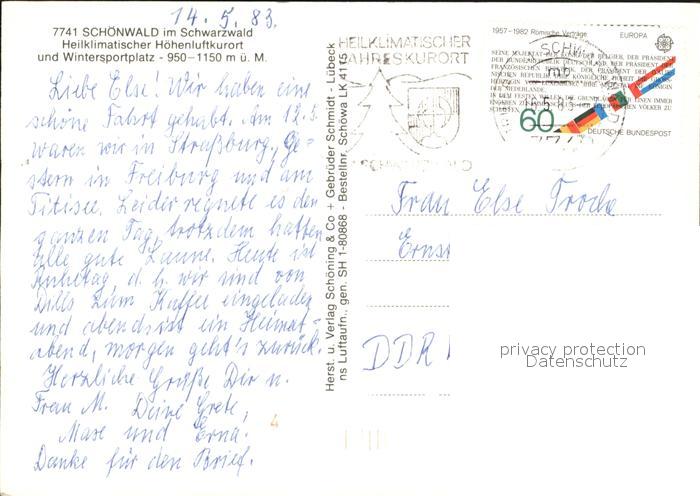 14.5.83.
7741 SCHÖNWALD im Schwarzwald
Heilklimatischer Höhenluftkurort
und Wintersportplatz - 950–1150 m ü. M.
Liebe Else! Wir haben eine
schöne Fahrt gehabt. Am 12.5.
waren wir in Straßburg, Ge-
stern in Freiburg und am
Titisee. Leider regnete es den
ganzen Tag, trotzdem hatten
alle gute Laune. Heute ist
Ruhetag, d. h. wir sind von
Dills zum Kaffee eingeladen
und abends ist ein Heimat-
abend, morgen geht's zurück.
Herzliche Grüße Dir u.
Frau M. Deine Grete,
Maxe und Erna.
Danke für den Brief.
Herst. u. Verlag Schöning & Co + Gebrüder Schmidt - Lübeck
ns Luftaufn., gen. SH 1-80868 - Bestellnr. Schöwa LK 4115
HEILKLIMATISCHER
JAHRESKURORT
1957-1982 Römische Verträge EUROPA
60
DEUTSCHE BUNDESPOST
Frau Else Troche
Erns
DDR
privacy protection
Datenschutz